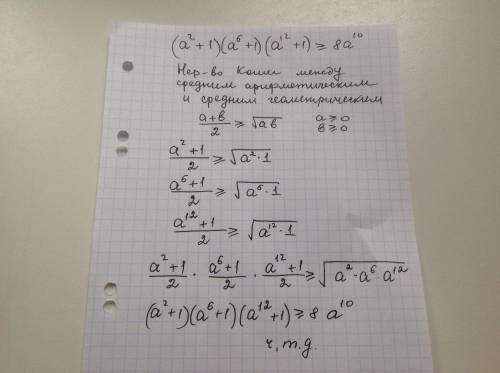 (a² + 1)(a⁶ + 1)(a¹² + 1) ≥ 8a¹⁰
Нер-во Коши между
средним арифметическим
и средним геометрическим
(a+b)/2 ≥ √(ab) a ≥ 0
b ≥ 0
(a² + 1)/2 ≥ √(a² · 1)
(a⁶ + 1)/2 ≥ √(a⁶ · 1)
(a¹² + 1)/2 ≥ √(a¹² · 1)
(a² + 1)/2 · (a⁶ + 1)/2 · (a¹² + 1)/2 ≥ √(a² · a⁶ · a¹²)
(a² + 1)(a⁶ + 1)(a¹² + 1) ≥ 8 a¹⁰
ч.т.д.